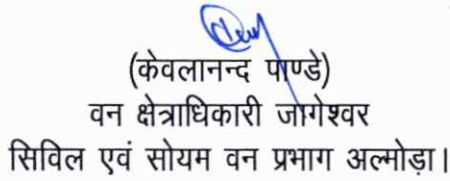 (केवलानन्द पाण्डे)
वन क्षेत्राधिकारी जागेश्वर
सिविल एवं सोयम वन प्रभाग अल्मोड़ा।